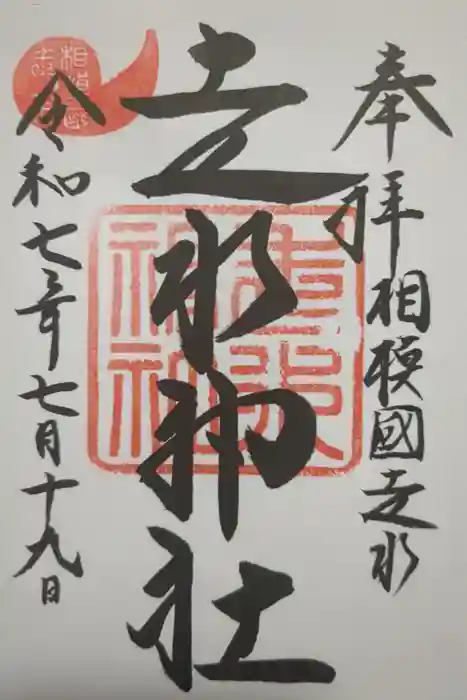 奉拝
相模國走水
走水神社
令和七年七月十九日
走水神社